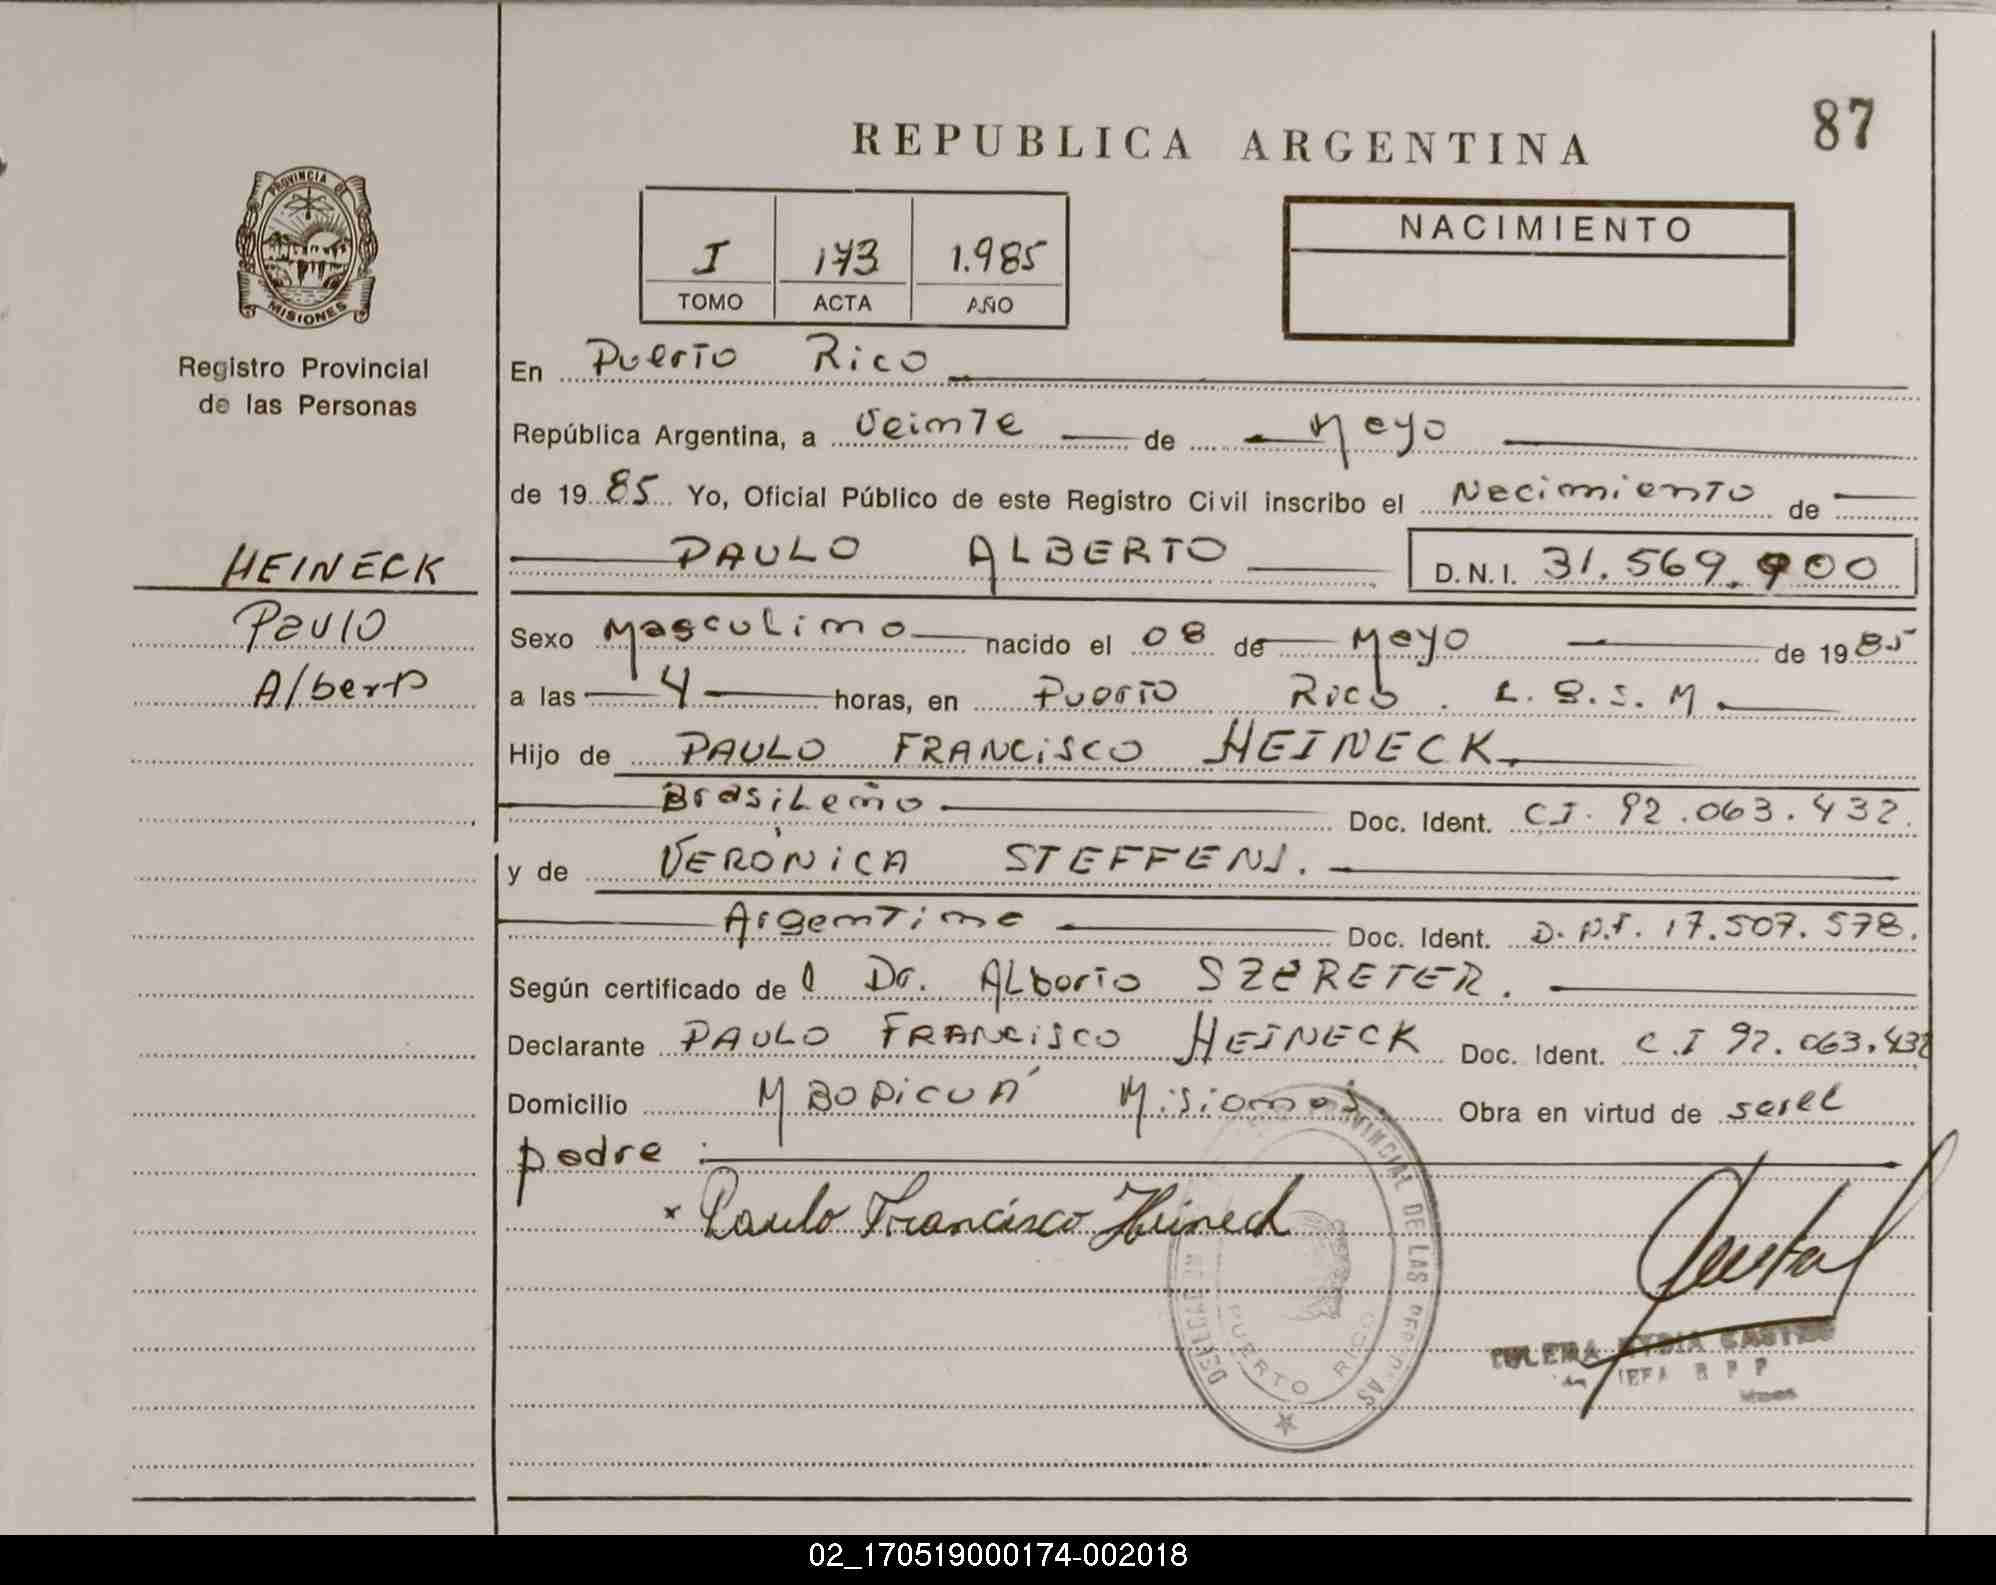 87
REPUBLICA ARGENTINA
PROVINCIA DE
MISIONES
Registro Provincial
de las Personas
I 173 1.985
TOMO ACTA AÑO
NACIMIENTO
En Puerto Rico
República Argentina, a Veinte de Mayo
de 1985 Yo, Oficial Público de este Registro Civil inscribo el Nacimiento de
PAULO ALBERTO D.N.I. 31.569.900
HEINECK
Paulo
Alberto
Sexo Masculino nacido el 08 de Mayo de 1985
a las 4 horas, en Puerto Rico. L.G.S.M.
Hijo de PAULO FRANCISCO HEINECK.
Brasileño Doc. Ident. C.I. 92.063.432.
y de VERÓNICA STEFFENS.
Argentina Doc. Ident. D.N.I. 17.507.578.
Según certificado del Dr. Alberto SZERETER.
Declarante PAULO FRANCISCO HEINECK Doc. Ident. C.I 92.063.432
Domicilio MBOPICUÁ Misiones. Obra en virtud de ser el
padre.
x Paulo Francisco Heineck
PROVINCIAL DE LAS PERSONAS
DELEGACION
PUERTO RICO
JEFA R P P
02_170519000174-002018